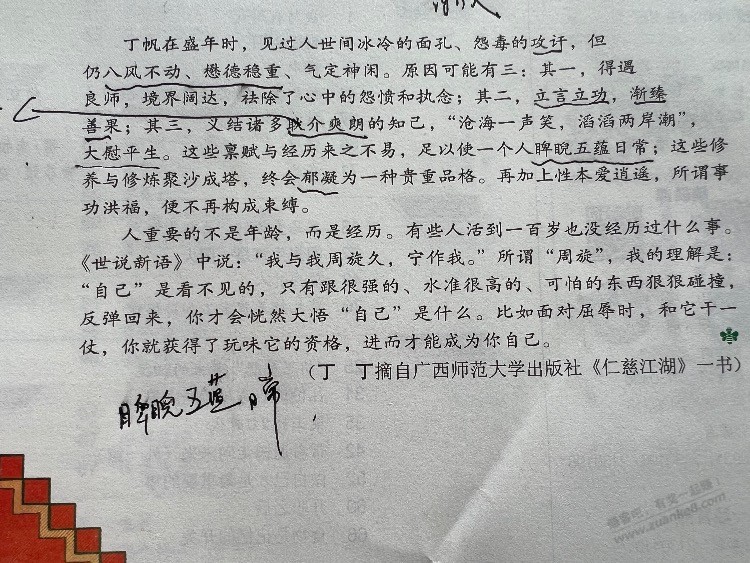 丁帆在盛年时，见过人世间冰冷的面孔、怨毒的攻讦，但
仍八风不动、懋德稳重、气定神闲。原因可能有三：其一，得遇
良师，境界阔达，祛除了心中的怨愤和执念；其二，立言立功，渐臻
善果；其三，义结诸多耿介爽朗的知己，“沧海一声笑，滔滔两岸潮”，
大慰平生。这些禀赋与经历来之不易，足以使一个人睥睨五蕴日常；这些修
养与修炼聚沙成塔，终会郁凝为一种贵重品格。再加上性本爱逍遥，所谓事
功洪福，便不再构成束缚。
人重要的不是年龄，而是经历。有些人活到一百岁也没经历过什么事。
《世说新语》中说：“我与我周旋久，宁作我。”所谓“周旋”，我的理解是：
“自己”是看不见的，只有跟很强的、水准很高的、可怕的东西狠狠碰撞，
反弹回来，你才会恍然大悟“自己”是什么。比如面对屈辱时，和它干一
仗，你就获得了玩味它的资格，进而才能成为你自己。
（丁　丁摘自广西师范大学出版社《仁慈江湖》一书）
睥睨五蕴日常
赚客吧，有奖一起赚！
www.zuanke8.com